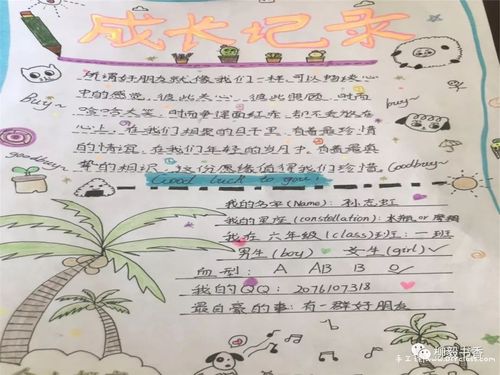 成长记录
所谓好朋友就像我们一样,可以畅谈心
中的感觉,彼此关心,彼此照顾,时而
哈哈大笑,时而争得面红赤,却不会放在
心上,在我们相聚的日子里,有着最珍惜
的情谊,在我们年轻的岁月中,有着最真
挚的相识,这份愿缘值得我们珍惜
Buy~
Buy~
Goodbuy~
Goodbuy~
Good luck to you!
我的名字(Name):孙志虹
我的星座(constellation):水瓶or摩羯
我在六年级(class)班:一班
男生(boy) 女生(girl)✓
血型: A AB B O✓
我的QQ:2076107318
最自豪的事:有一群好朋友
柳毅书香